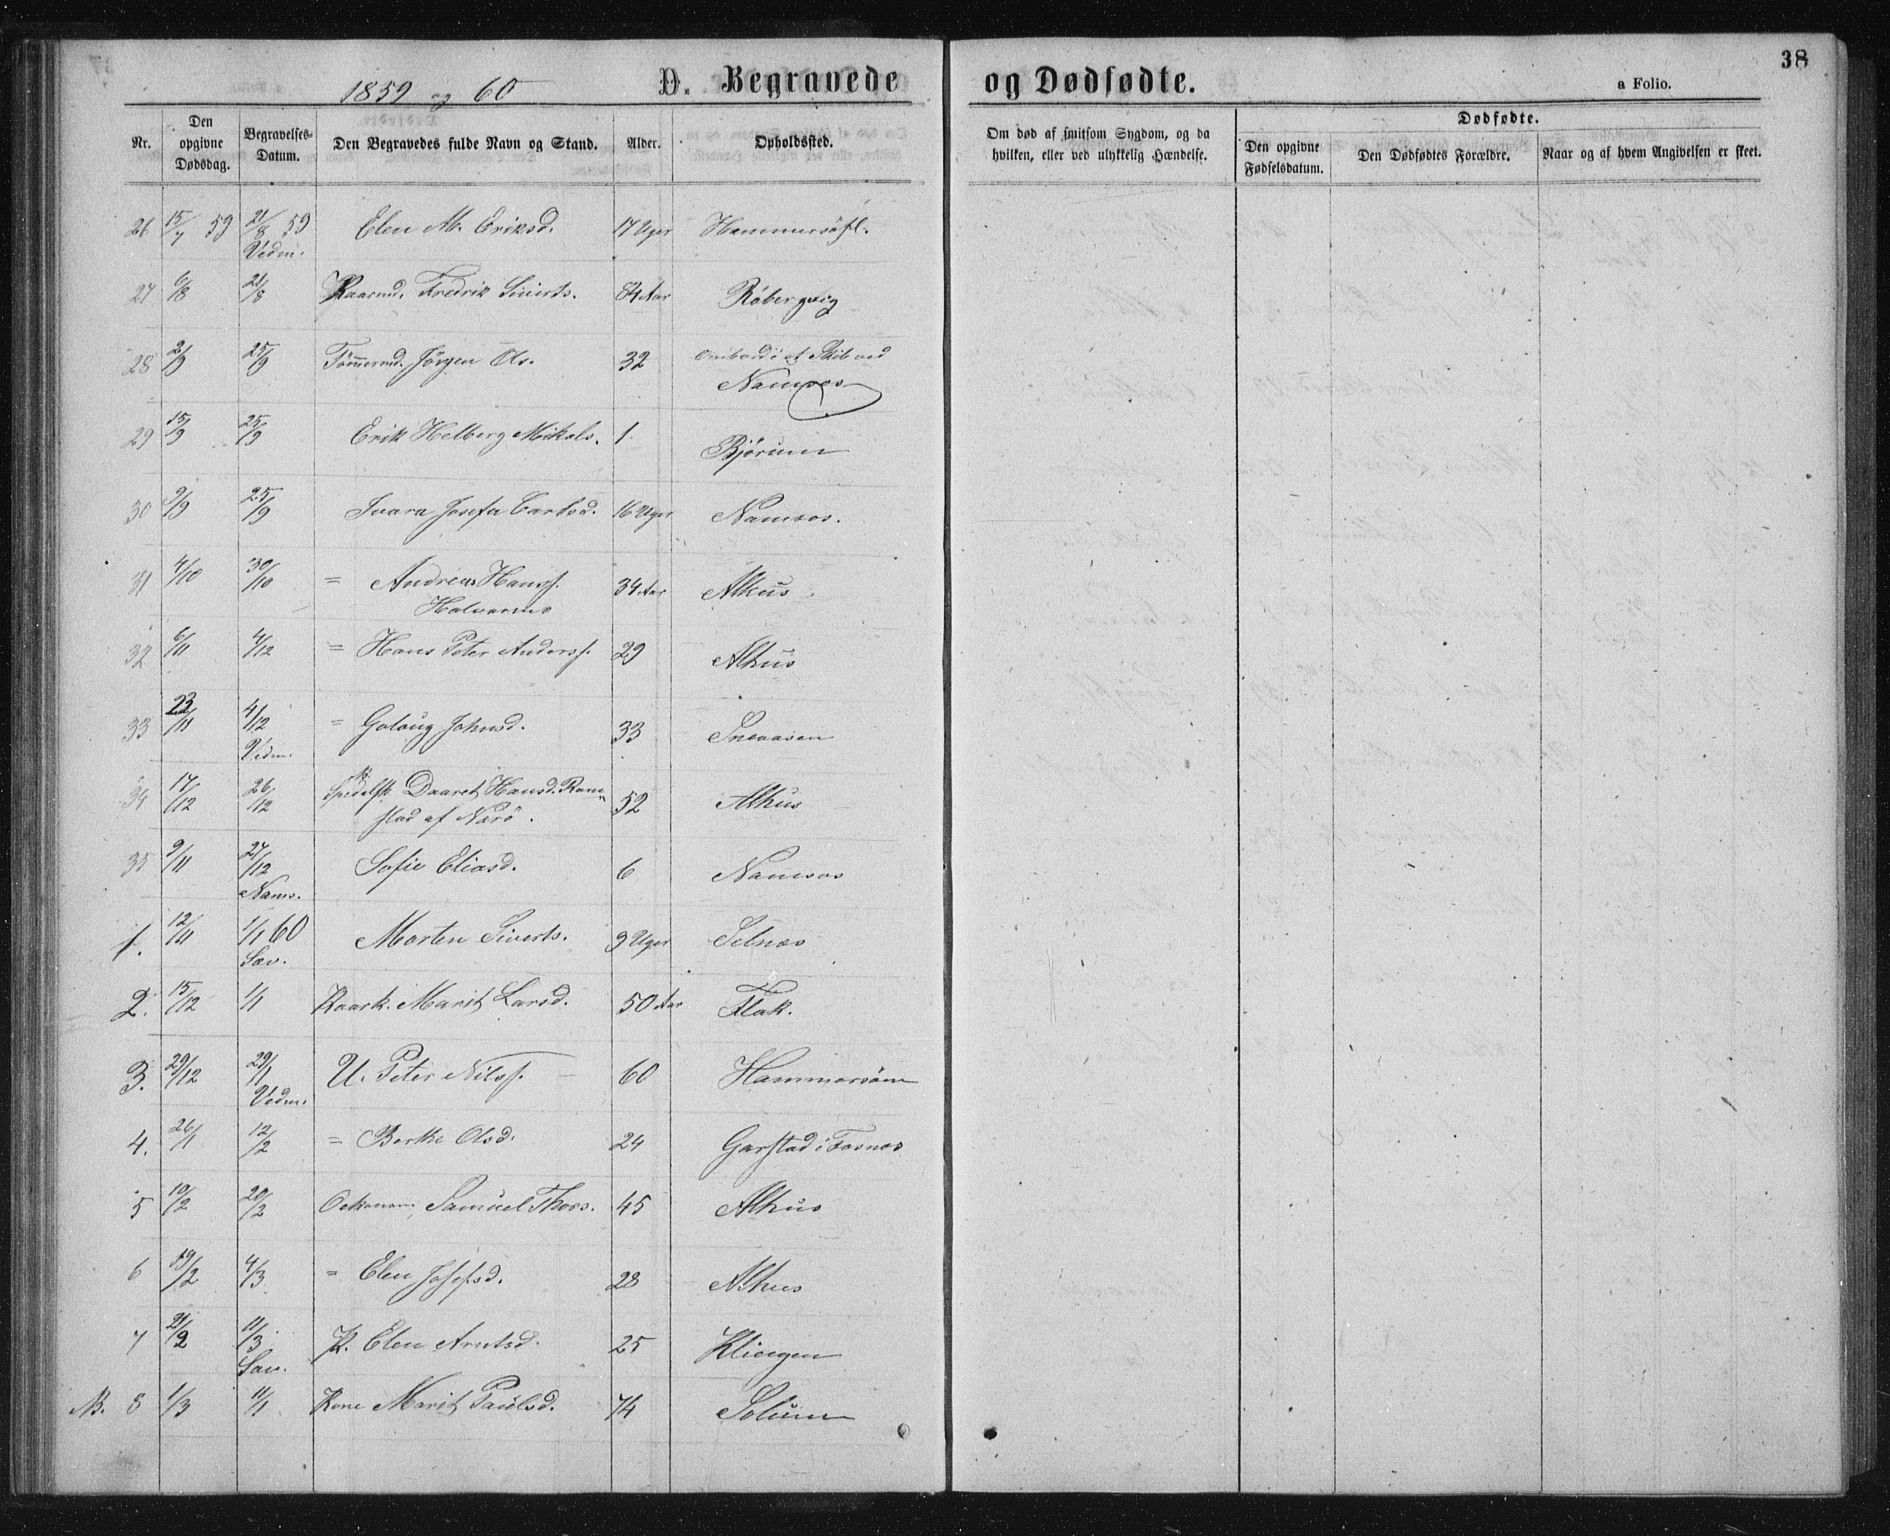 1859 og 60 D. Begravede og Dødfødte. a Folio. 38
Nr. Den opgivne Dødsdag. Begravelses-Datum. Den Begravedes fulde Navn og Stand. Alder. Opholdssted. Om død af smitsom Sygdom, og da hvilken, eller ved ulykkelig Hændelse. Dødfødte. Den opgivne Fødselsdatum. Den Dødfødtes Forældre. Naar og af hvem Angivelsen er skeet.
26 15/7 59 21/8 59 Elen M. Eriksd. 17 Uger
Vedm.
27 6/8 21/8 Kaarmd. Fredrik Siverts. 84 Aar Råbergvig
28 2/9 25/9 Tømmermd. Jörgen Ols. 32 ombord i et Skib ved
Namsos
29 15/9 25/9 Erik Helberg Mikals. 1. Bjørum
30 9/9 25/9 Ivara Josefa Carlsd. 16 Uger Namsos.
31 4/10 30/10 = Andreas Hansf. 34 Aar Alhus
Halvarmo
32 6/11 4/12 = Hans Peter Andersf. 29 Alhus
33 23/11 4/12 = Goloug Johnsd. 33 Sneaasen
Vedm.
34 17/12 26/12 Spedalsk Daaret Hansd. Ram= 52 Alhus
stad af Närö.
35 9/11 27/12 Sofie Eliasd. 6 Namsos
Nams.
1. 12/11 1/1 60 Morten Siverts. 9 Uger Selnæs
Sæv.
2. 15/12 1/1 Kaark. Marit Larsd. 50 Aar Flak.
3. 29/12 29/1 U. Peter Nilsf. 60 Hammersöm
Vedm.
4. 26/1 12/2 = Berthe Olsd. 24 Garstad i Fosnæs
5 10/2 20/2 Oekonom, Samuel Thors. 45 Alhus
6 19/2 4/3 = Elen Josefsd. 28 Alhus
7 21/2 11/3 K. Elen Arntsd. 25 Klingen
Sæv.
N. 8 1/3 11/1 Kone Marit Paulsd. 74 Solum